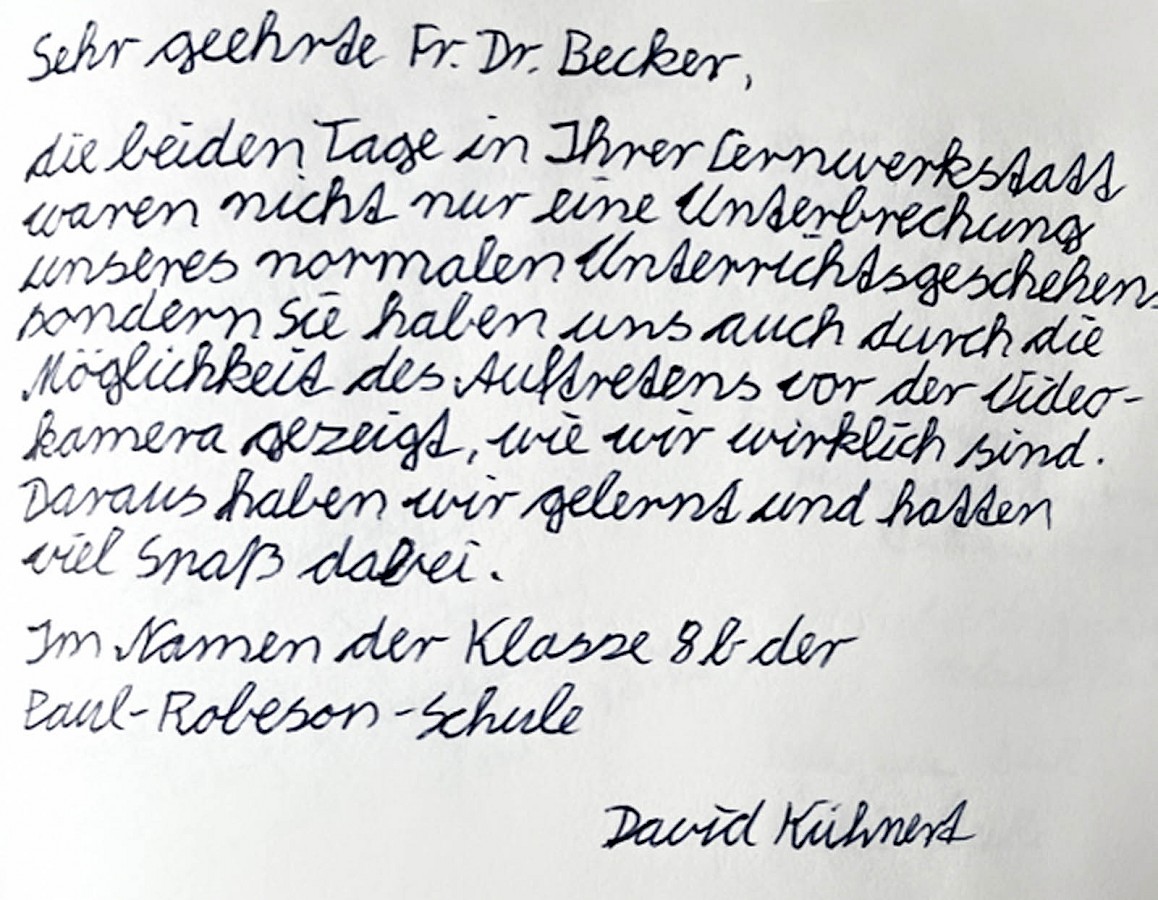 Sehr geehrte Fr. Dr. Becker,
die beiden Tage in Ihrer Lernwerkstatt
waren nicht nur eine Unterbrechung
unseres normalen Unterrichtsgeschehens
sondern Sie haben uns auch durch die
Möglichkeit des Auftretens vor der Video-
kamera gezeigt, wie wir wirklich sind.
Daraus haben wir gelernt und hatten
viel Spaß dabei.
Im Namen der Klasse 8b der
Paul-Robeson-Schule
David Kühnert